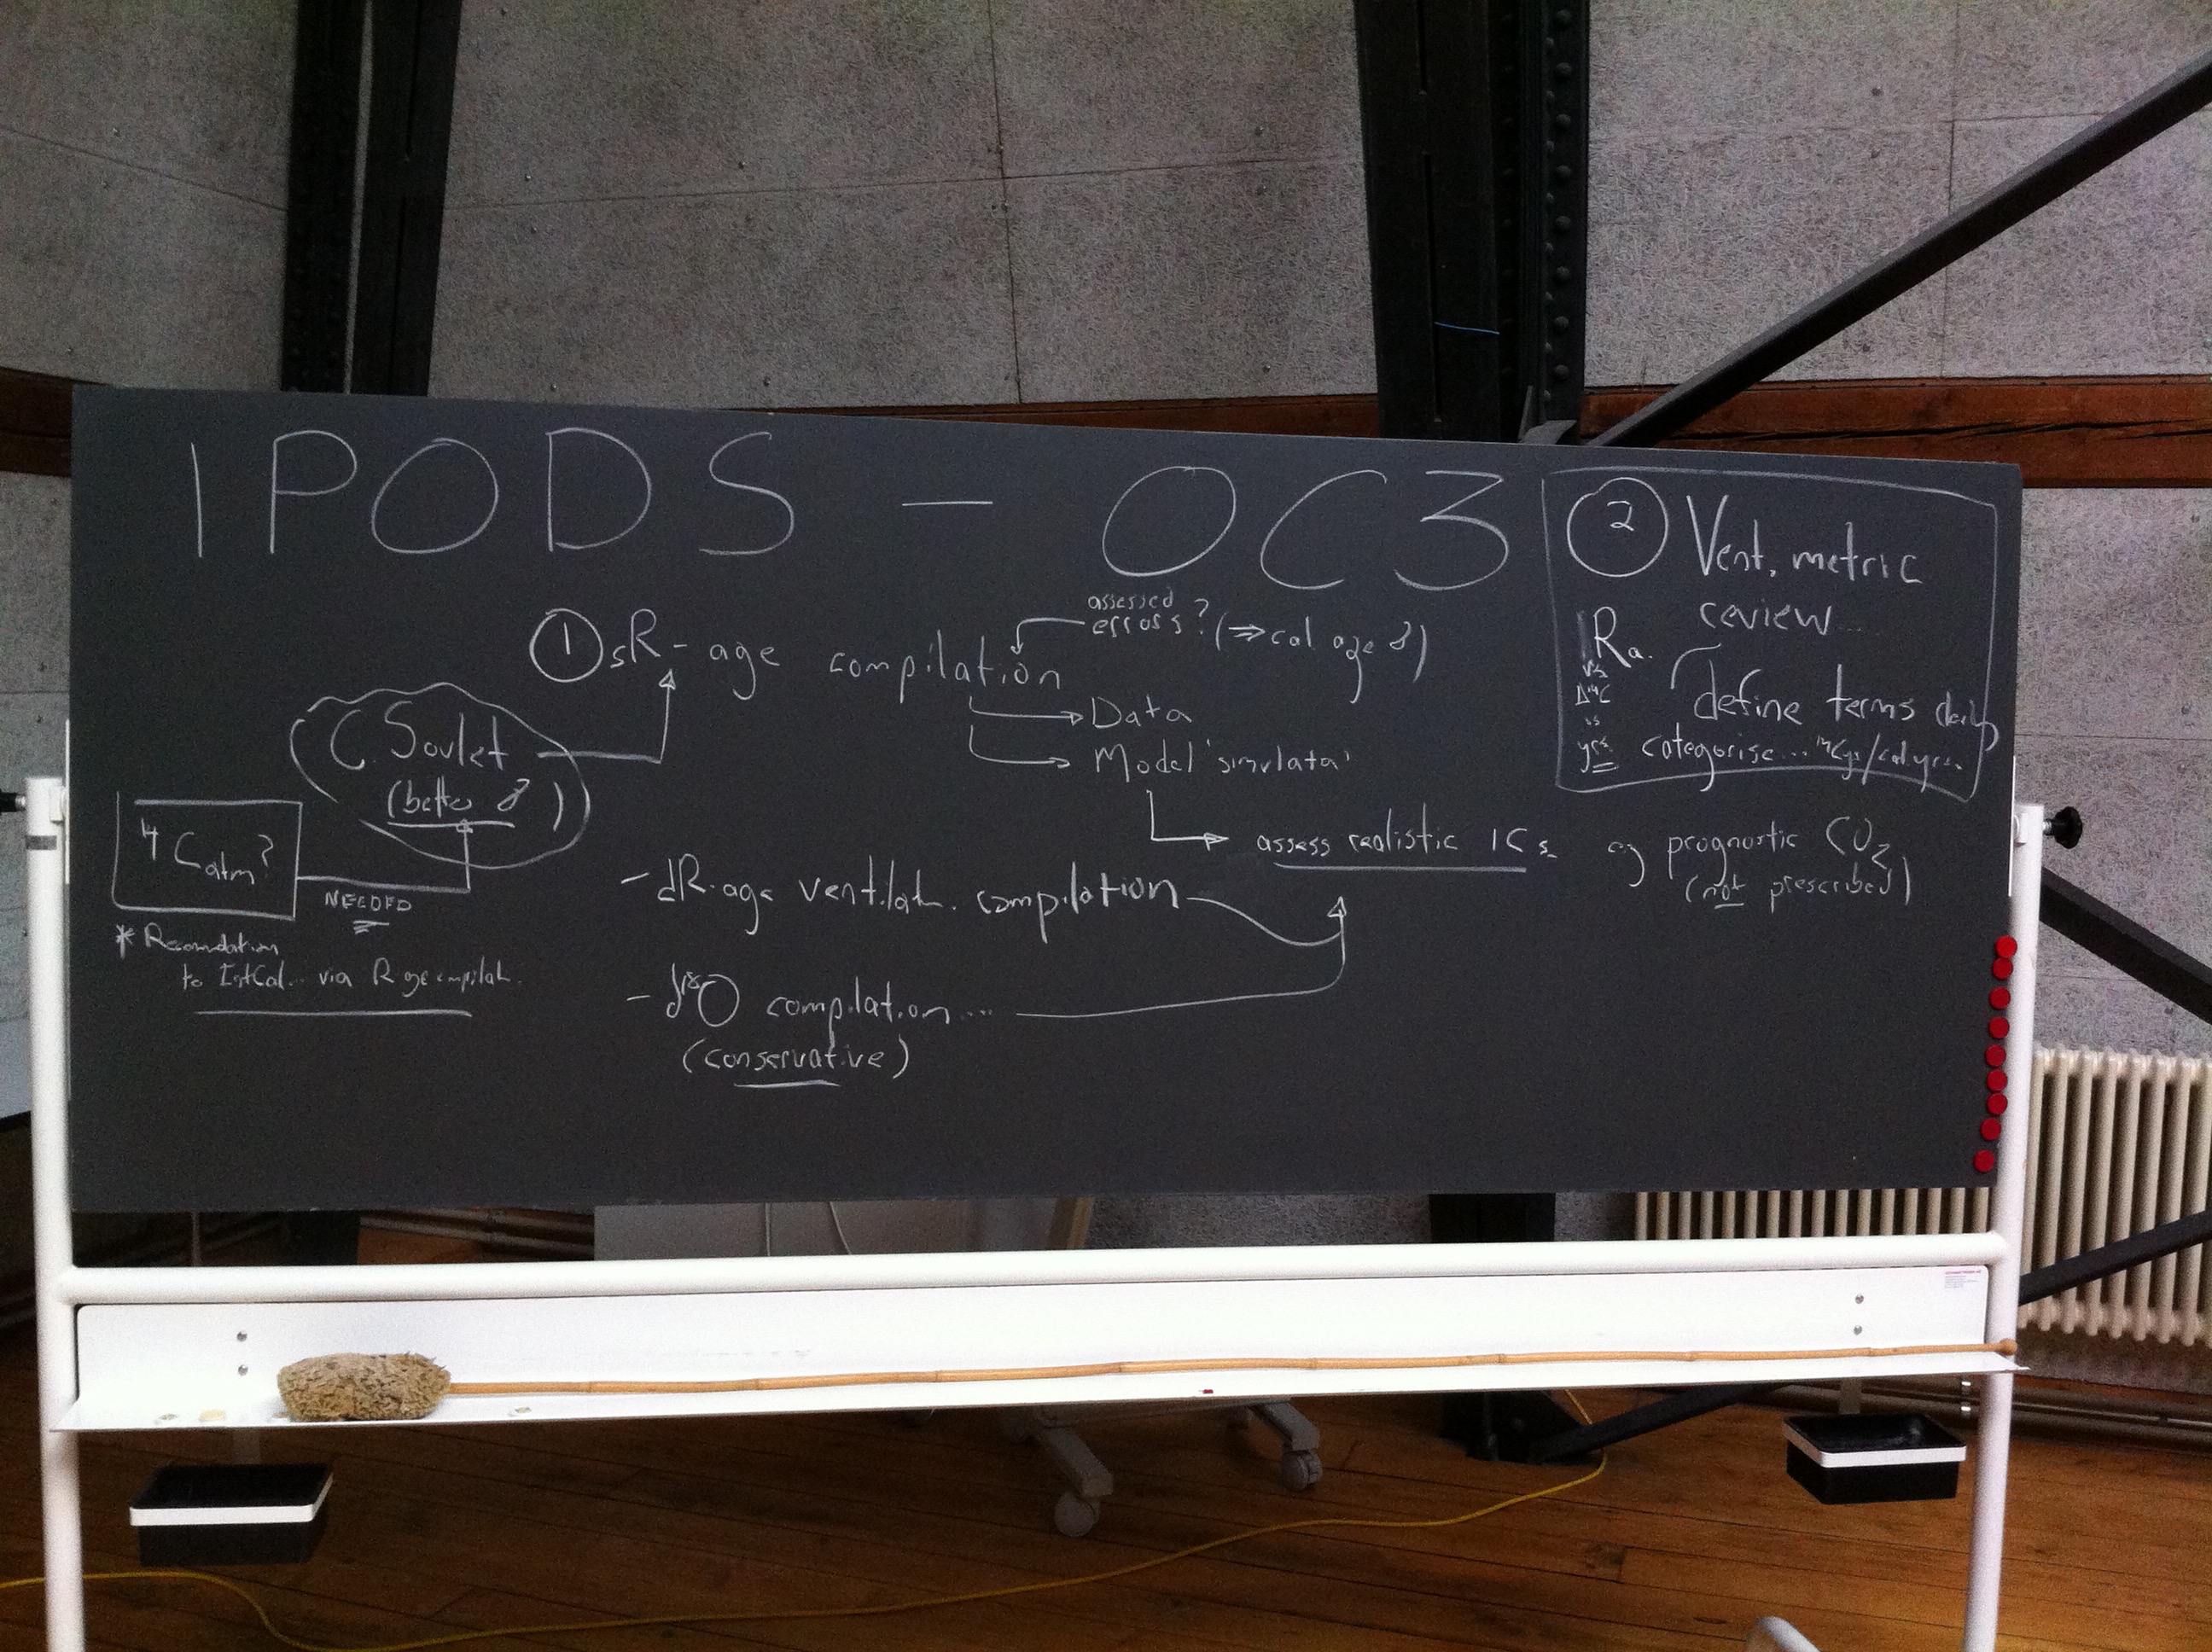 IPODS — OC3
① sR-age compilation
assessed
errors? (⇒ cal age
→ Data
→ Model 'simulata'
→ assess realistic ICs
eg prognostic CO2
(not prescribed)
C. Soulet
(better
14Catm?
NEEDED
* 
to IntCal... via R-age
- dR-age ventilat. compilation
- δ18O compilation...
(conservative)
② Vent. metric
review...
Ra.
vs
Δ14C
vs
yrs
define terms
categorise... 14Cys/cal.yrs.